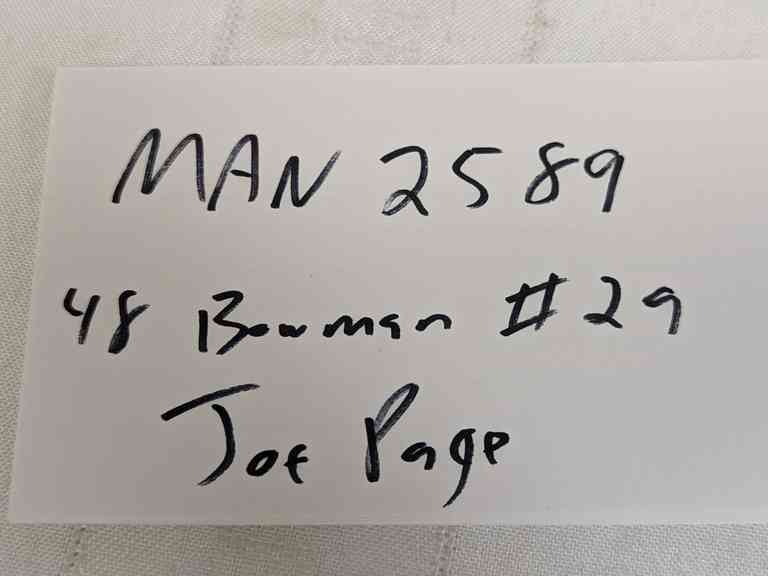 MAN 2589
48 Bowman #29
Joe Page